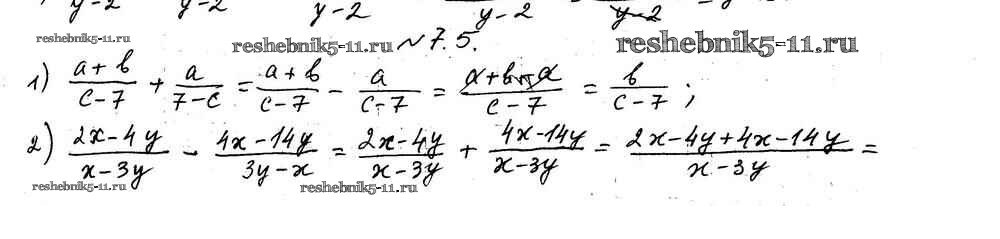 y-2 y-2 y-2 y-2 y-2
reshebnik5-11.ru reshebnik5-11.ru №7.5. reshebnik5-11.ru
1) (a+b)/(c-7) + a/(7-c) = (a+b)/(c-7) - a/(c-7) = (a+b-a)/(c-7) = b/(c-7) ;
2) (2x-4y)/(x-3y) - (4x-14y)/(3y-x) = (2x-4y)/(x-3y) + (4x-14y)/(x-3y) = (2x-4y+4x-14y)/(x-3y) =
reshebnik5-11.ru reshebnik5-11.ru